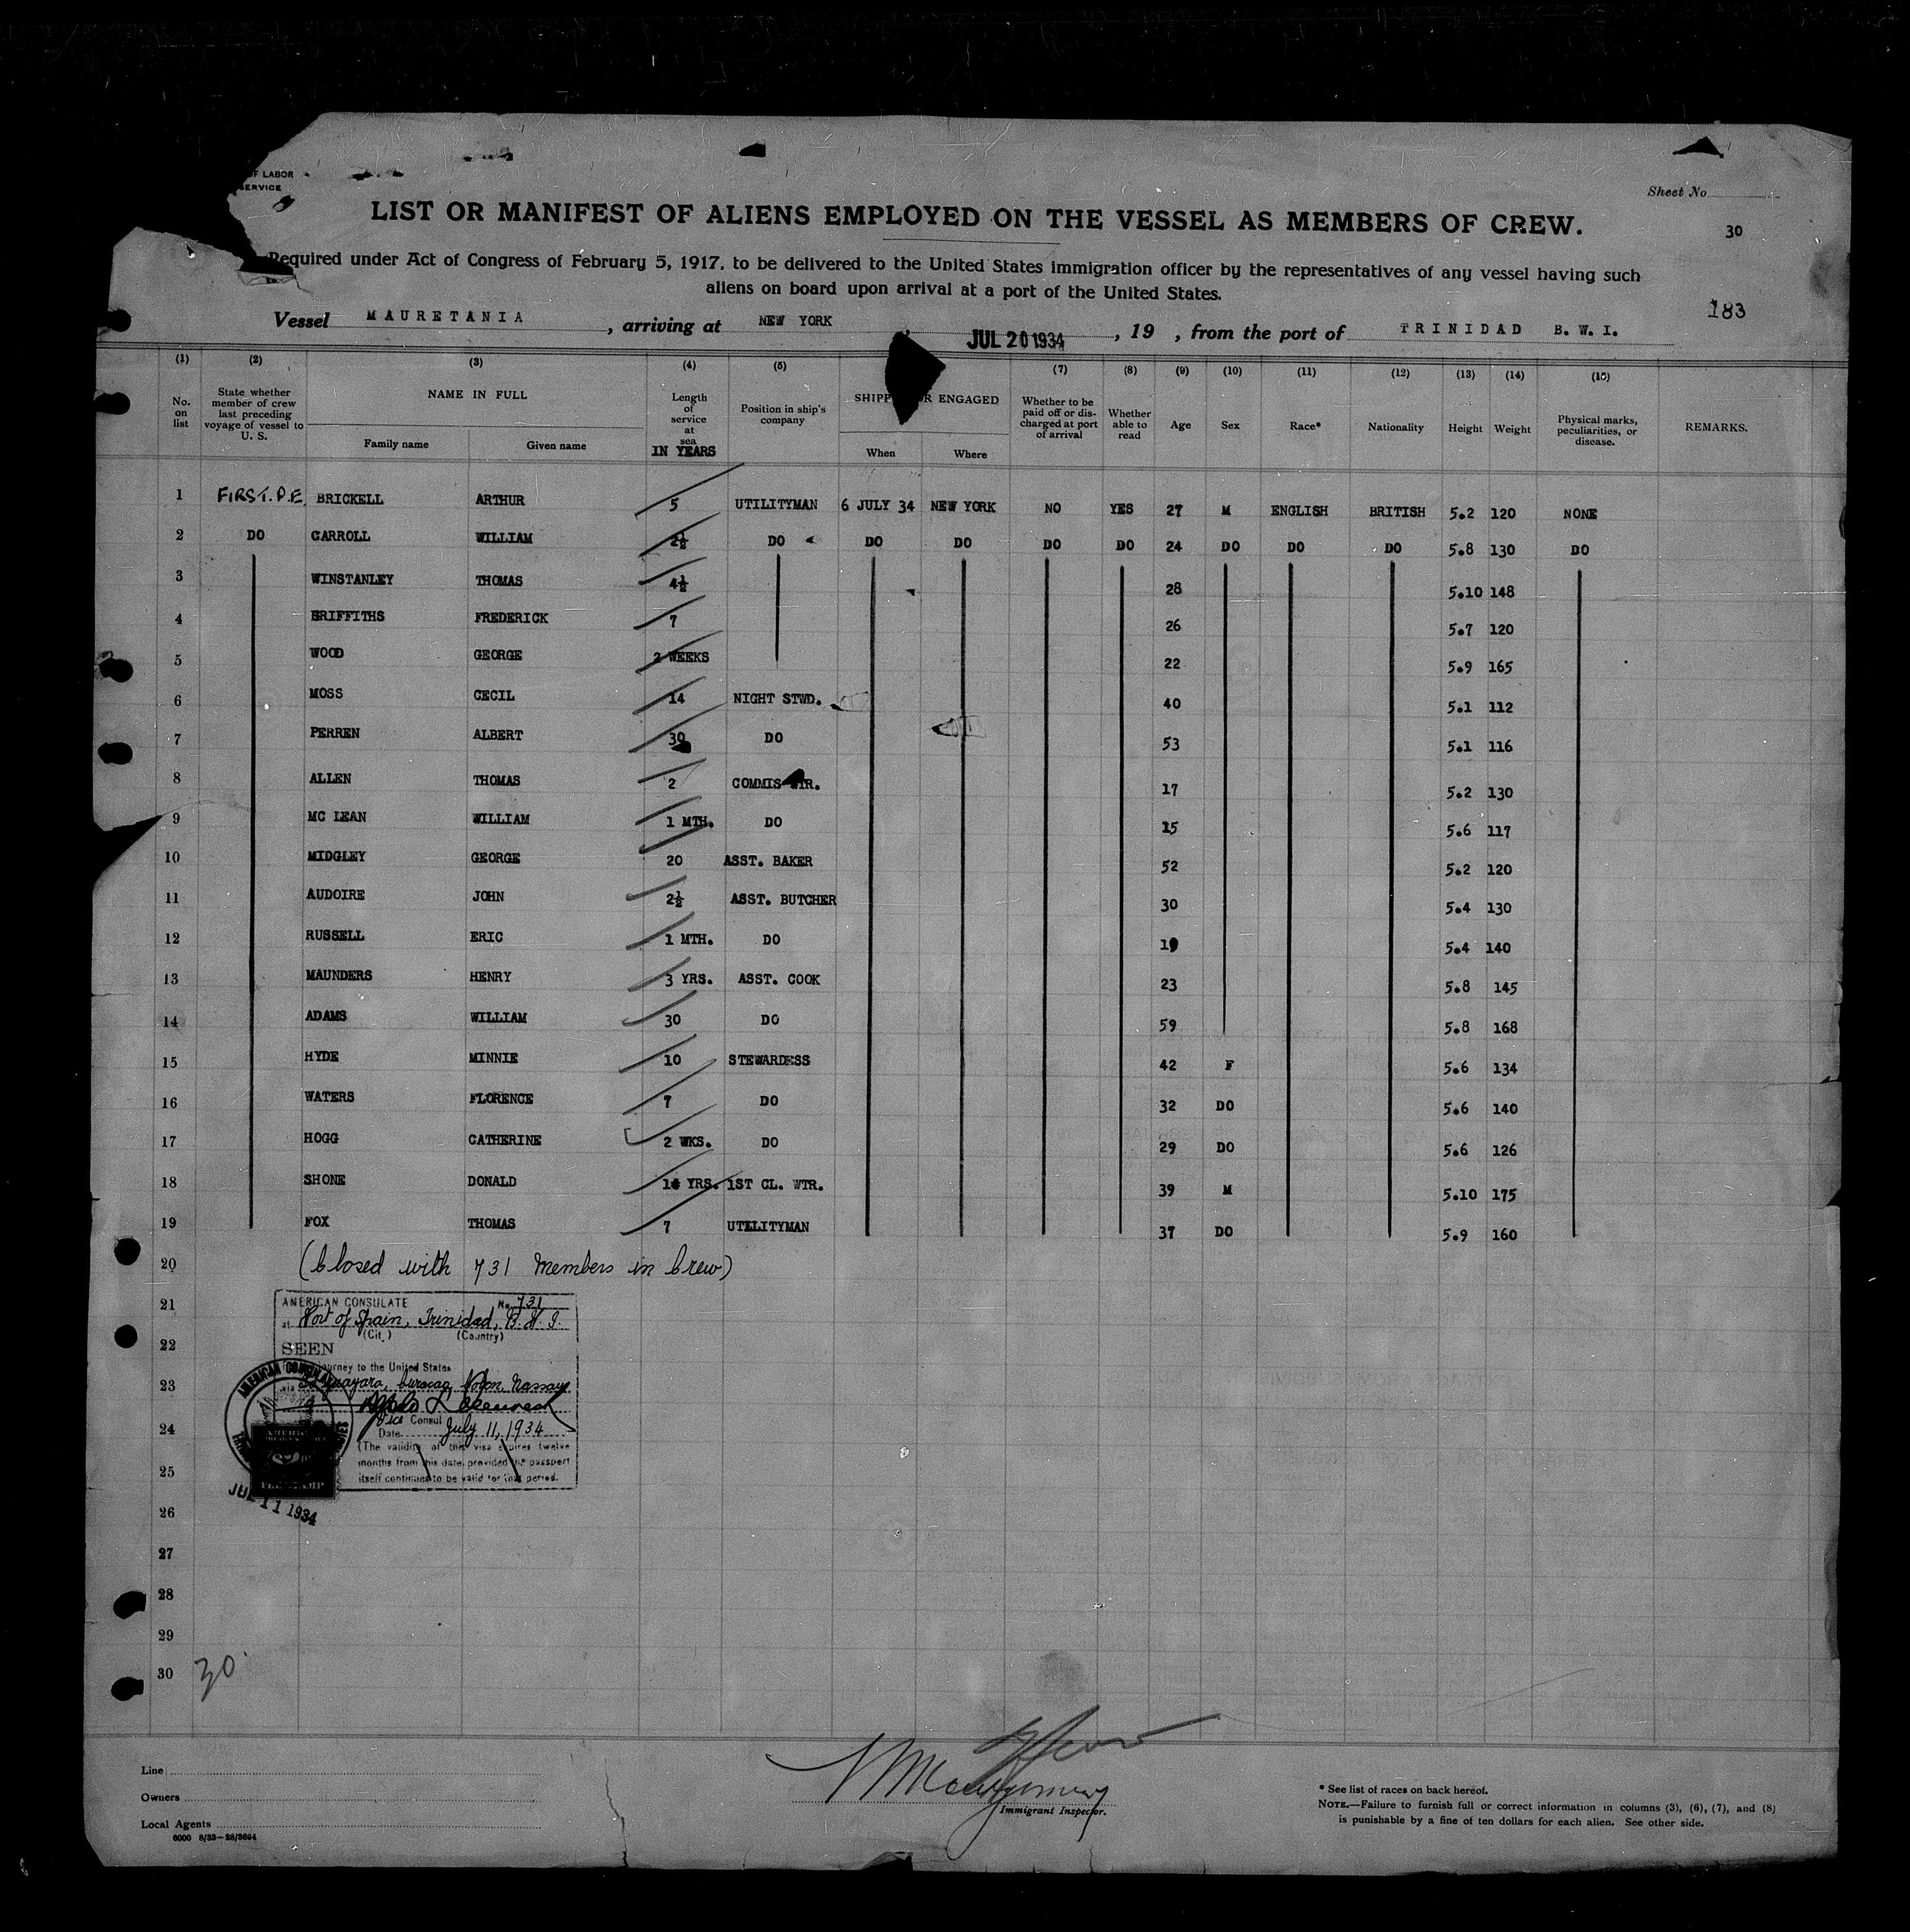 OF LABOR
SERVICE
Sheet No.
LIST OR MANIFEST OF ALIENS EMPLOYED ON THE VESSEL AS MEMBERS OF CREW.
30
Required under Act of Congress of February 5, 1917, to be delivered to the United States immigration officer by the representatives of any vessel having such
aliens on board upon arrival at a port of the United States.
183
Vessel MAURETANIA, arriving at NEW YORK, JUL 20 1934, 19 , from the port of TRINIDAD B. W. I.
(1) (2) (3) (4) (5) (7) (8) (9) (10) (11) (12) (13) (14) (15)
No. on list
State whether member of crew last preceding voyage of vessel to U. S.
NAME IN FULL
Family name Given name
Length of service at sea IN YEARS
Position in ship's company
SHIPP R ENGAGED
When Where
Whether to be paid off or discharged at port of arrival
Whether able to read
Age Sex Race* Nationality Height Weight
Physical marks, peculiarities, or disease.
REMARKS.
1 FIRST.P.E. BRICKELL ARTHUR 5 UTILITYMAN 6 JULY 34 NEW YORK NO YES 27 M ENGLISH BRITISH 5.2 120 NONE
2 DO CARROLL WILLIAM 2½ DO DO DO DO DO 24 DO DO DO 5.8 130 DO
3 WINSTANLEY THOMAS 4½ 28 5.10 148
4 GRIFFITHS FREDERICK 7 26 5.7 120
5 WOOD GEORGE 2 WEEKS 22 5.9 165
6 MOSS CECIL 14 NIGHT STWD. 40 5.1 112
7 PERREN ALBERT 30 DO 53 5.1 116
8 ALLEN THOMAS 2 COMMIS WTR. 17 5.2 130
9 MC LEAN WILLIAM 1 MTH. DO 15 5.6 117
10 MIDGLEY GEORGE 20 ASST. BAKER 52 5.2 120
11 AUDOIRE JOHN 2½ ASST. BUTCHER 30 5.4 130
12 RUSSELL ERIC 1 MTH. DO 19 5.4 140
13 MAUNDERS HENRY 3 YRS. ASST. COOK 23 5.8 145
14 ADAMS WILLIAM 30 DO 59 5.8 168
15 HYDE MINNIE 10 STEWARDESS 42 F 5.6 134
16 WATERS FLORENCE 7 DO 32 DO 5.6 140
17 HOGG CATHERINE 2 WKS. DO 29 DO 5.6 126
18 SHONE DONALD YRS. 1ST CL. WTR. 39 M 5.10 175
19 FOX THOMAS 7 UTILITYMAN 37 DO 5.9 160
20 (Closed with 731 members in Crew)
21
22
23
24
25
26
27
28
29
30
AMERICAN CONSULATE No. 731
at Port of Spain, Trinidad, B.W.I.
(City) (Country)
SEEN
journey to the United States
via La Guayara, Curacao, Colon, Nassau
Vice Consul
Date July 11, 1934
(The validity of this visa expires twelve
months from this date, provided the passport
itself continues to be valid for this period.
AMERICAN CONSULATE
JUL 11 1934
30
Line
Owners
Local Agents
6000 8/33—28/3694
Montgomery
Immigrant Inspector.
* See list of races on back hereof.
NOTE.—Failure to furnish full or correct information in columns (3), (6), (7), and (8)
is punishable by a fine of ten dollars for each alien. See other side.